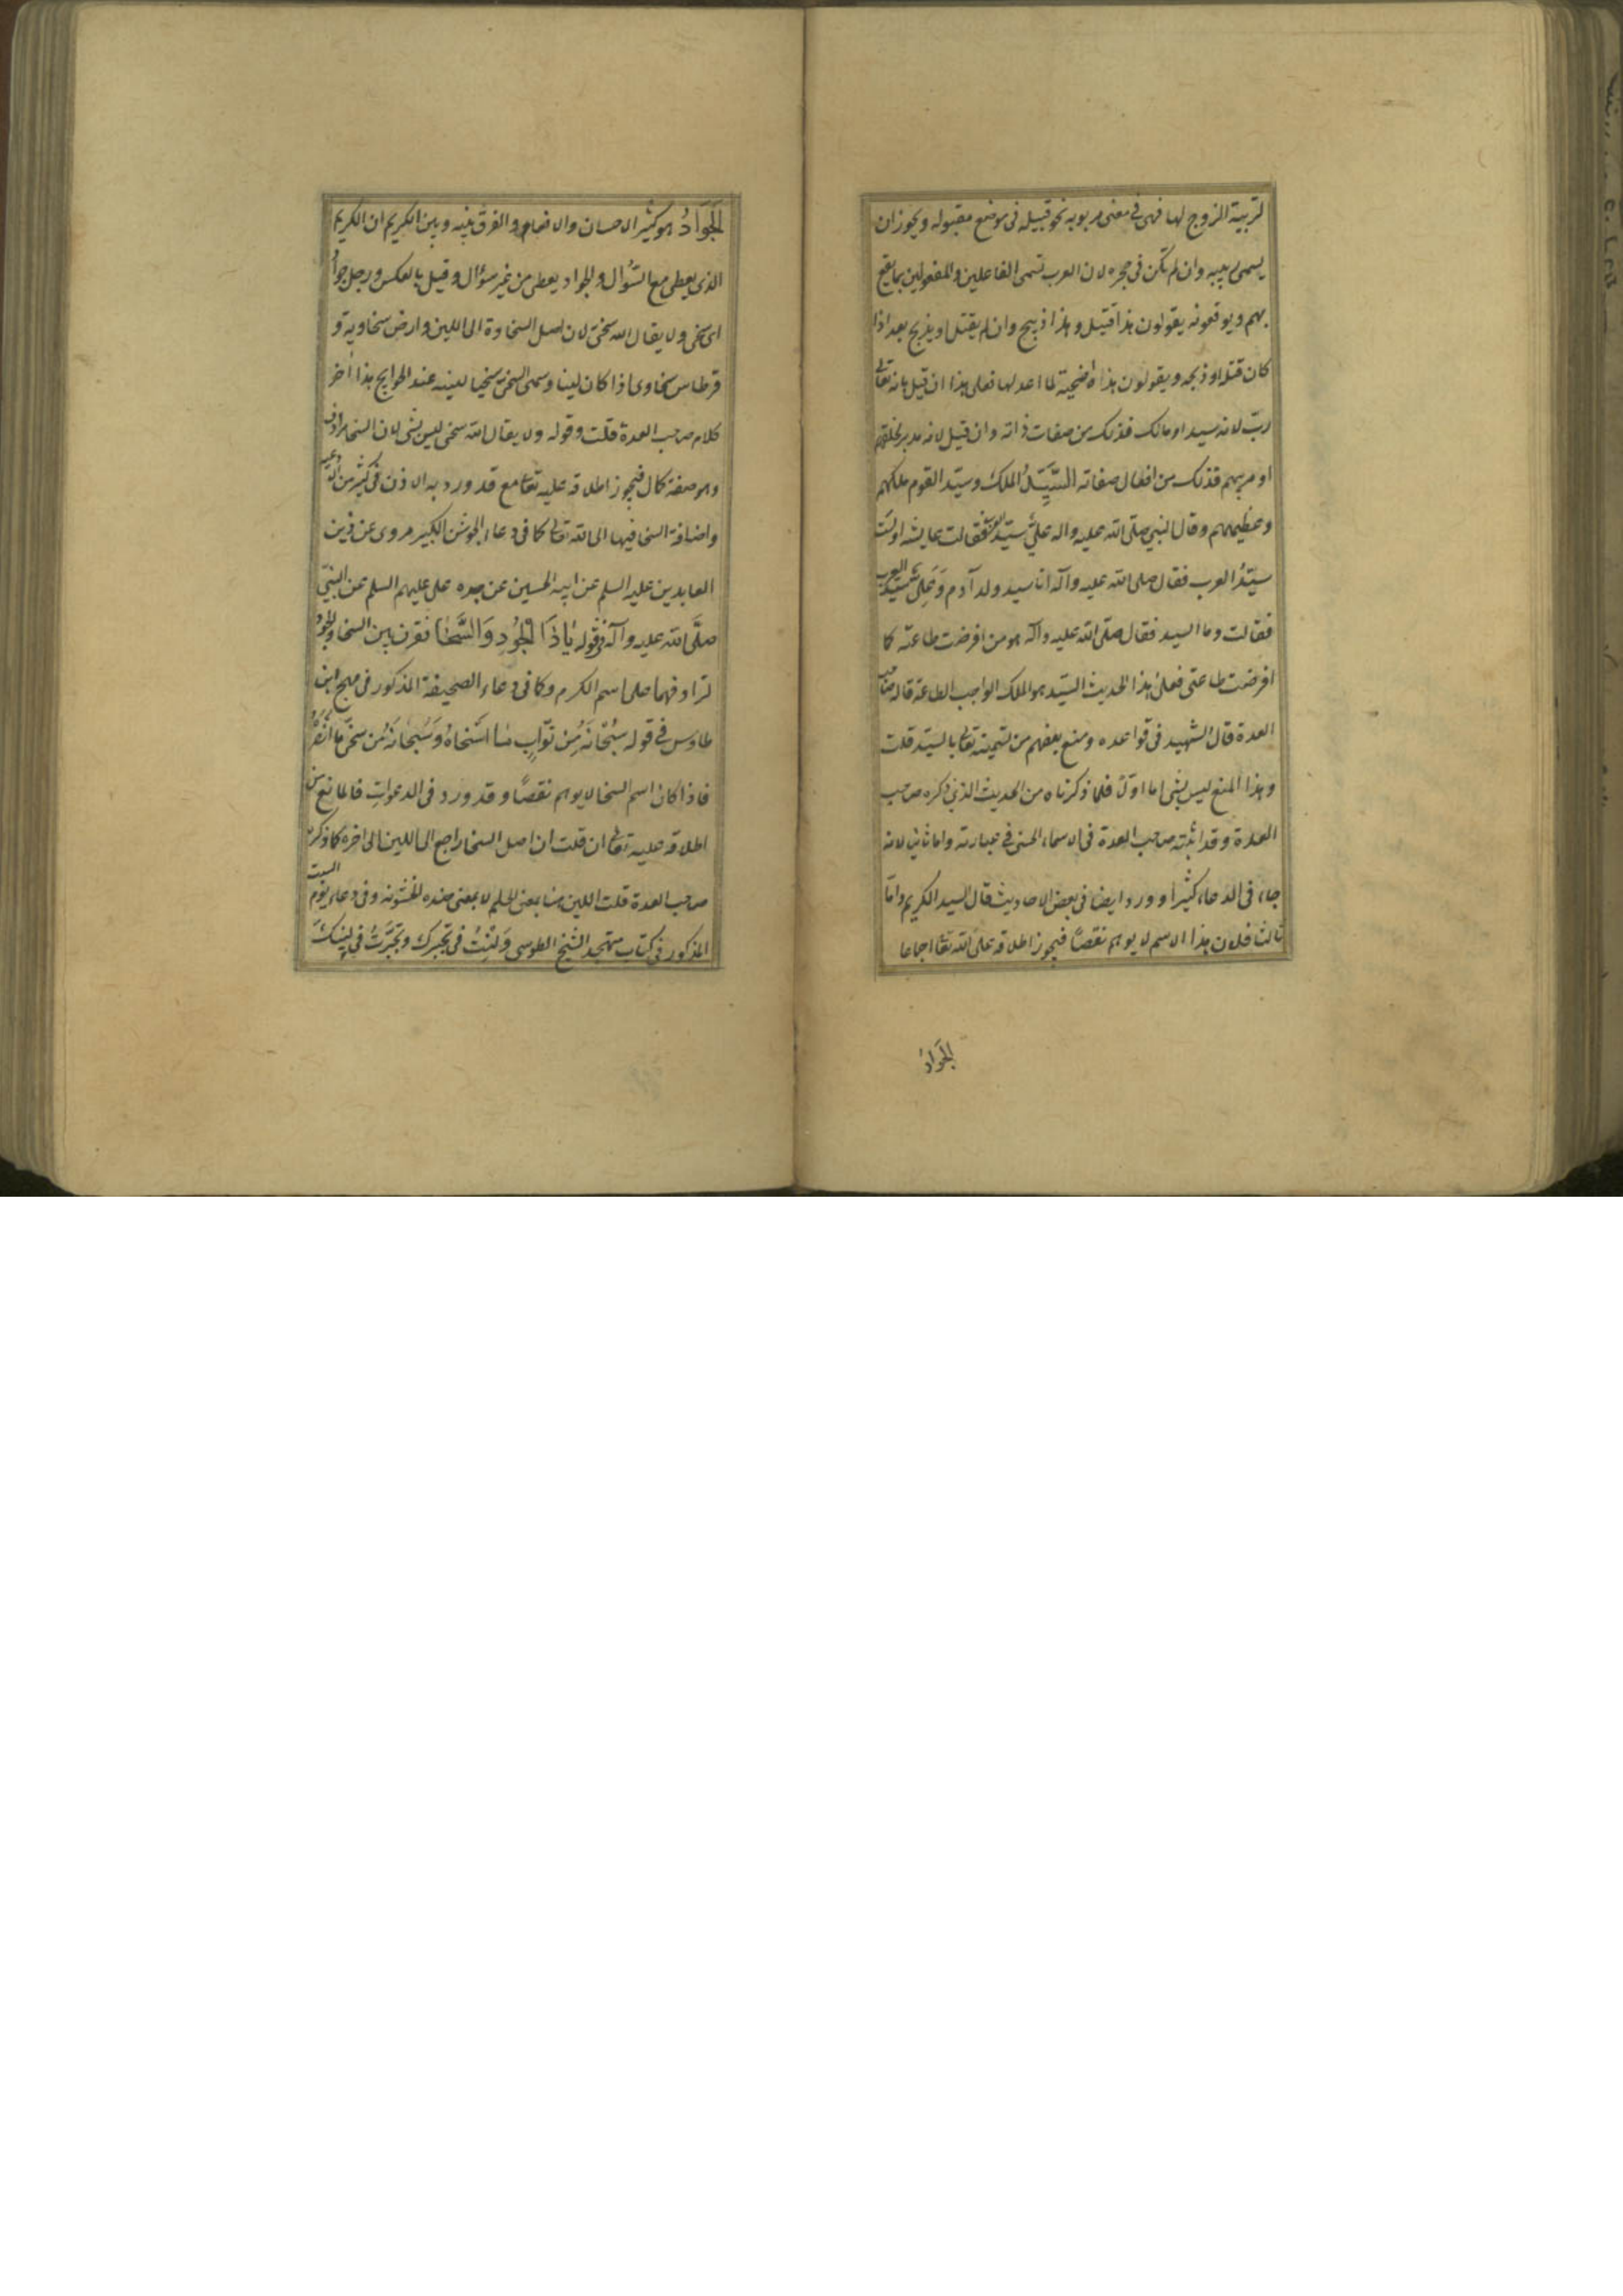 لتربية الزوج لها فهى فى معنى مربوبه نحو قبيله فى موضع مقبوله ويجوز ان
يسمى ربيبه وان لم تكن فى حجره لان العرب تسمى الفاعلين والمفعولين بما يقع
بهم ويوقعونه يقولون هذا قتيل وهذا ذبيح وان لم يقتل او يذبح بعد اذا
كان قتله او ذبحه ويقولون هذه اضحية لما اعد لها فعلى هذا ان قيل بانه تعالى
ربّ لانه سيد او مالك فذلك من صفات ذاته وان قيل لانه مدبر لخلقهم
او مربيهم فذلك من افعال صفاته السَّيِّدُ الملك وسيّد القوم ملكهم
وعظيمهم وقال النبي صلى الله عليه واله علىّ سيّد العرب فقالت عايشه اولست
سيّدُ العرب فقال صلى الله عليه وآله انا سيد ولد آدم وَعَلِىٌّ سيّد العرب
فقالت وما السيد فقال صلى الله عليه وآله هو من افرضت طاعته كما
افرضت طاعتى فعلى هذا الحديث السيّد هو الملك الواجب الطاعة قاله صاحب
العدة قال الشهيد فى قواعده ومنع بعضهم من تسميته تعالى بالسيّد قلت
وهذا المنع ليس بشى اما اوّلا فلما ذكرناه من الحديث الذى ذكره صاحب
العدة وقد اثبته صاحب العدة فى الاسماء الحسنى فى عبارته واما ثانيا لانه
جاء فى الدعاء كثيرا وورد ايضا فى بعض الاحاديث قال السيد الكريم وامّا
ثالثا فلان هذا الاسم لا يوهم نقصًا فيجوز اطلاقه على الله تعا اجماعا
الجَوادُ
الجَوَادُ هو كثير الاحسان والانعام والفرق بينه وبين الكريم ان الكريم
الذى يعطى مع السؤال والجواد يعطى من غير سؤال وقيل بالعكس ورجل جوادٌ
اى سخى ولا يقال لله سخىّ لان اصل السخاوة الى اللين وارض سخاوية و
قرطاس سخاوى اذا كان لينا وسمى السخى سخيا للينه عند الحوايج هذا آخر
كلام صاحب العدة قلت وقوله ولا يقال الله سخى ليس بشى لان السخا مرادف
وهو صفة كمال فيجوز اطلاقه عليه تعا مع قد ورد به الاذن فى كثير من الادعيه
واضافة السخا فيها الى الله تعالى كما فى دعاء الجوشن الكبير مروى عن زين
العابدين عليه السلم عن ابيه الحسين عن جده على عليهم السلم عن النبىّ
صلَّى الله عليه وآله فى قوله يَاذَا الْجُودِ وَالسَّخَا فقرن بين السخا والجود
لترادفهما على اسم الكرم وكما فى دعاء الصحيفة المذكور فى مهج ابن
طاوس فى قوله سُبْحَانَهُ مِن توّابٍ مَا اَسْخاهُ وَسُبْحَانَهُ مِن سخىّ ما اَنْصَرَهُ
فاذا كان اسم السخا لا يوهم نقصًا وقد ورد فى الدعوات فما المانع من
اطلاقه عليه تعالى ان قلت ان اصل السخا راجع الى اللين الى اخره كما ذكره
صاحب العدة قلت اللين هنا بمعنى الحلم لا بمعنى ضده الخشونه وفى دعاء يوم السبت
المذكور فى كتاب متهجد الشيخ الطوسى وَلِنْتُ فى تجبرك وتَجَبَّرَتُ فى لينكَ